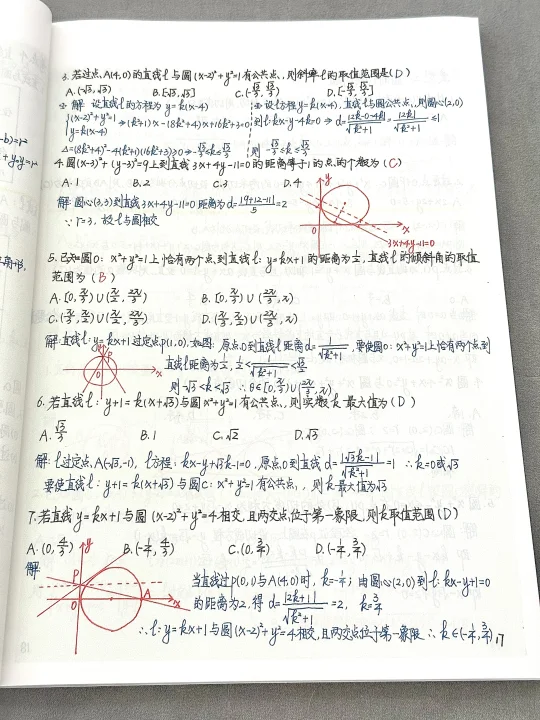 3. 若过点A(4,0)的直线l与圆(x-2)²+y²=1有公共点,则斜率l的取值范围是(D)
A. (-√3,√3) B.[-√3,√3] C.(-√3/3,√3/3) D.[-√3/3,√3/3]
解: 设直线l的方程为 y=k(x-4)
{(x-2)²+y²=1
y=k(x-4) ⇒(k²+1)x²-(8k²+4)x+16k²+3=0
Δ=(8k²+4)²-4(k²+1)(16k²+3)≥0⇒-√3/3≤k≤√3/3
设l方程y=k(x-4), 直线l与圆公共点,则圆心(2,0)
到l:kx-y-4k=0 ⇒ d=|2k-0-4k|/√k²+1=|2k|/√k²+1≤1
则 -√3/3≤k≤√3/3
4.圆(x-3)²+(y-3)²=9上到直线3x+4y-11=0的距离等于1的点的个数为(C)
A.1 B.2 C.3 D.4
解 圆心(3,3)到直线3x+4y-11=0距离为d=|9+12-11|/5=2
∵r=3, 故l与圆相交
y
x
0
3x+4y-11=0
5.已知圆O: x²+y²=1上恰有两个点到直线l: y=kx+1的距离为1/2, 直线l的倾斜角的取值
范围为(B)
A.[0,π/3)∪(π/2,2π/3) B.[0,π/3)∪(2π/3,π)
C.(π/3,π/2)∪(π/2,2π/3) D.(π/3,π/2)∪(2π/3,π)
y
P
0
x
解:直线l:y=kx+1过定点P(0,1),如图: 原点O到直线l距离d=1/√k²+1, 要使圆O: x²+y²=1上恰有两个点到
直线l距离为1/2, 1/2<1/√k²+1
则-√3<k<√3 ∴θ∈[0,π/3)∪(2π/3,π)
6. 若直线l: y+1=k(x+√3)与圆x²+y²=1有公共点,则实数k最大值为(D)
A.√3/3 B.1 C.√2 D.√3
解: l过定点A(-√3,-1), l方程: kx-y+√3k-1=0, 原点O到直线 d=|√3k-1|/√k²+1=1 ∴k=0或√3
要使直线l: y+1=k(x+√3)与圆C: x²+y²=1有公共点, 则k最大值为√3
7.若直线y=kx+1与圆(x-2)²+y²=4相交,且两交点位于第一象限,则k取值范围(D)
A.(0,4/3) B.(-1/4,4/3) C.(0,3/4) D.(-1/4,3/4)
解
y
P
0
A
x
当直线过P(0,1)与A(4,0)时, k=-1/4; 由圆心(2,0)到l: kx-y+1=0
的距离为2, 得 d=|2k+1|/√k²+1=2, k=3/4
∴l: y=kx+1与圆(x-2)²+y²=4相交,且两交点位于第一象限 ∴k∈(-1/4,3/4)
17